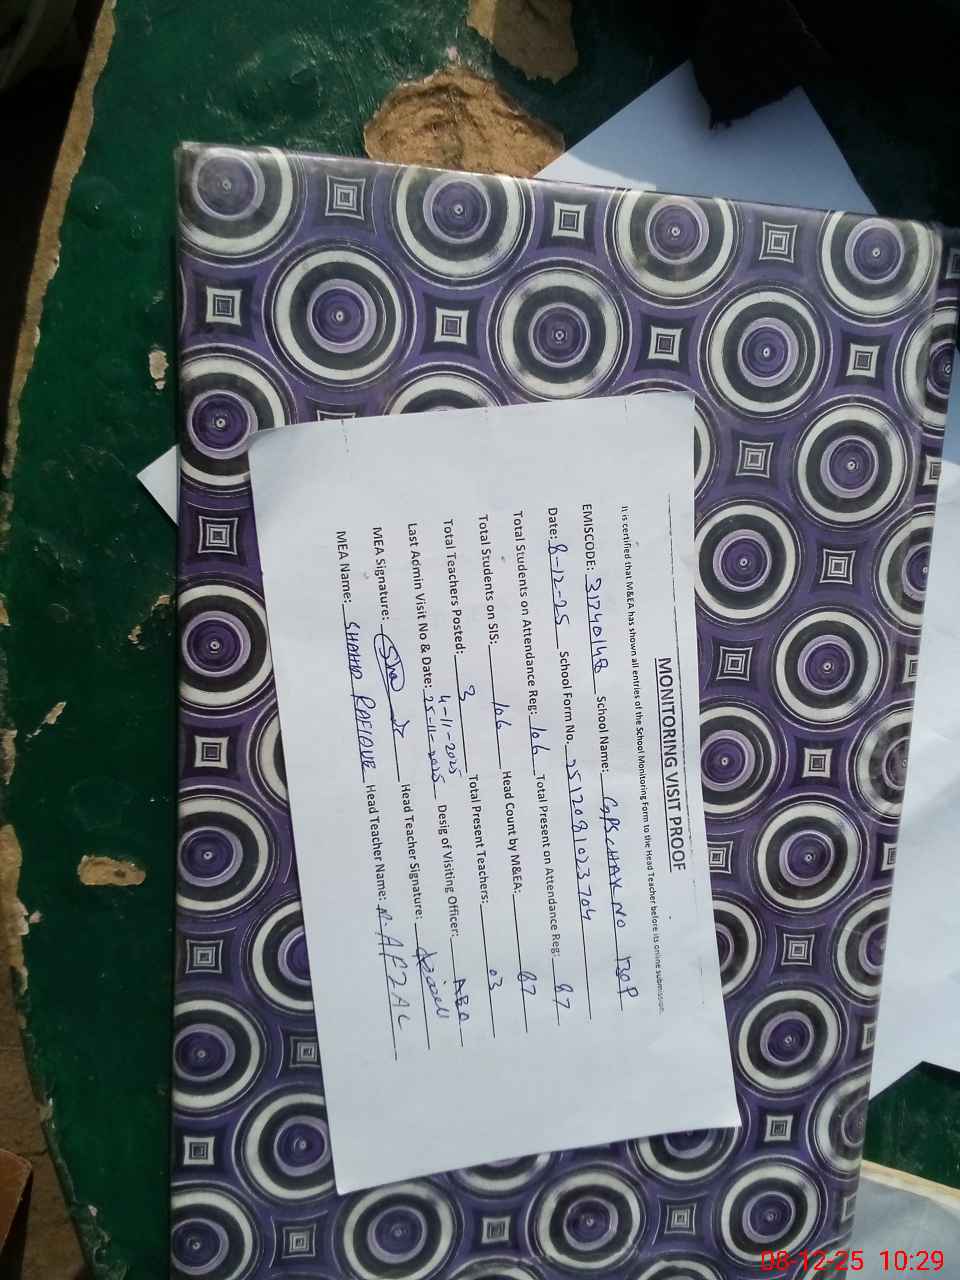 MONITORING VISIT PROOF
It is certified that M&EA has shown all entries of the School Monitoring Form to the Head Teacher before its online submission.
EMISCODE: 31740148 School Name: GPS CHAK NO 130P
Date: 8-12-25 School Form No. 2512081023704
Total Students on Attendance Reg: 106 Total Present on Attendance Reg: 87
Total Students on SIS: 106 Head Count by M&EA: 87
Total Teachers Posted: 3 Total Present Teachers: 03
4-11-2025
Last Admin Visit No & Date: 25-11-2025 Desig of Visiting Officer:
MEA Signature: Head Teacher Signature:
MEA Name: SHAHID RAFIQUE Head Teacher Name: M. AFZAL
08-12-25 10:29